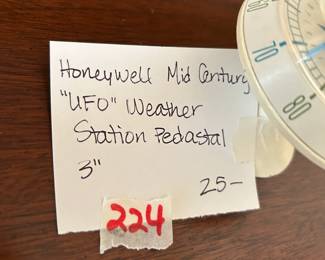 Honeywell Mid Century
"UFO" Weather
Station Pedastal
3"
25-
224
60
70
80